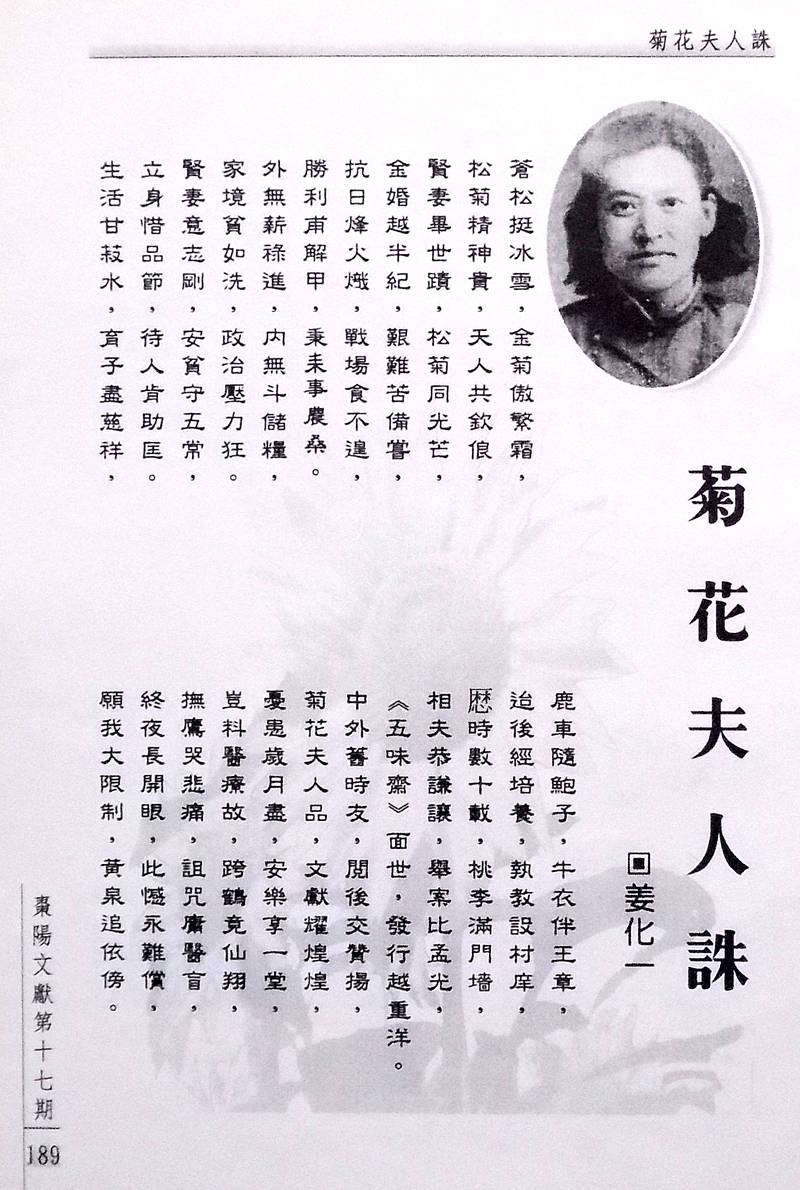 菊花夫人誄
菊花夫人誄
姜化一
蒼松挺冰雪，金菊傲繁霜，
松菊精神貴，天人共欽俍，
賢妻畢世蹟，松菊同光芒，
金婚越半紀，艱難苦備嘗，
抗日烽火熾，戰場食不遑，
勝利甫解甲，秉耒事農桑。
外無薪祿進，內無斗儲糧，
家境貧如洗，政治壓力狂。
賢妻意志剛，安貧守五常，
立身惜品節，待人肯助匡。
生活甘菽水，育子盡慈祥，
鹿車隨鮑子，牛衣伴王章，
迨後經培養，執教設村庠，
歷時數十載，桃李滿門墻，
相夫恭謙讓，舉案比孟光，
《五味齋》面世，發行越重洋。
中外舊時友，閱後交贊揚，
菊花夫人品，文獻耀煌煌，
憂患歲月盡，安樂享一堂，
豈料醫療故，跨鶴竟仙翔，
撫膺哭悲痛，詛咒庸醫盲，
終夜長開眼，此憾永難償，
願我大限制，黃泉追依傍。
棗陽文獻第十七期
189